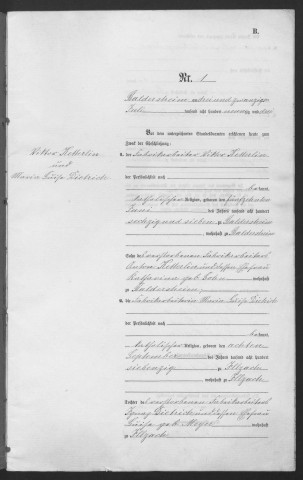 B.
Nr. 1
Baldersheim am drei und zwanzigsten
Juli tausend acht hundert neunzig und
Vor dem unterzeichneten Standesbeamten erschienen heute zum
Zweck der Eheschließung:
Viktor Ketterlin
und
Maria Luisa Dietrich
1. der Fabrikarbeiter Viktor Ketterlin
der Persönlichkeit nach
kannt,
katholischer Religion, geboren den fünfzehnten
Juni des Jahres tausend acht hundert
sechzig und sieben zu Baldersheim
, wohnhaft zu Baldersheim
Sohn des verstorbenen Fabrikarbeiters
Ketterlin und dessen Ehefrau
Katharina geb.
wohnhaft
zu Baldersheim
2. die Fabrikarbeiterin Maria Luisa Dietrich
der Persönlichkeit nach
kannt,
katholischer Religion, geboren den achten
September des Jahres tausend acht hundert
siebenzig zu Illzach
, wohnhaft zu Illzach
Tochter des verstorbenen Fabrikarbeiters
Ignaz Dietrich und dessen Ehefrau
Luisa geb. Meyer
wohnhaft
zu Illzach